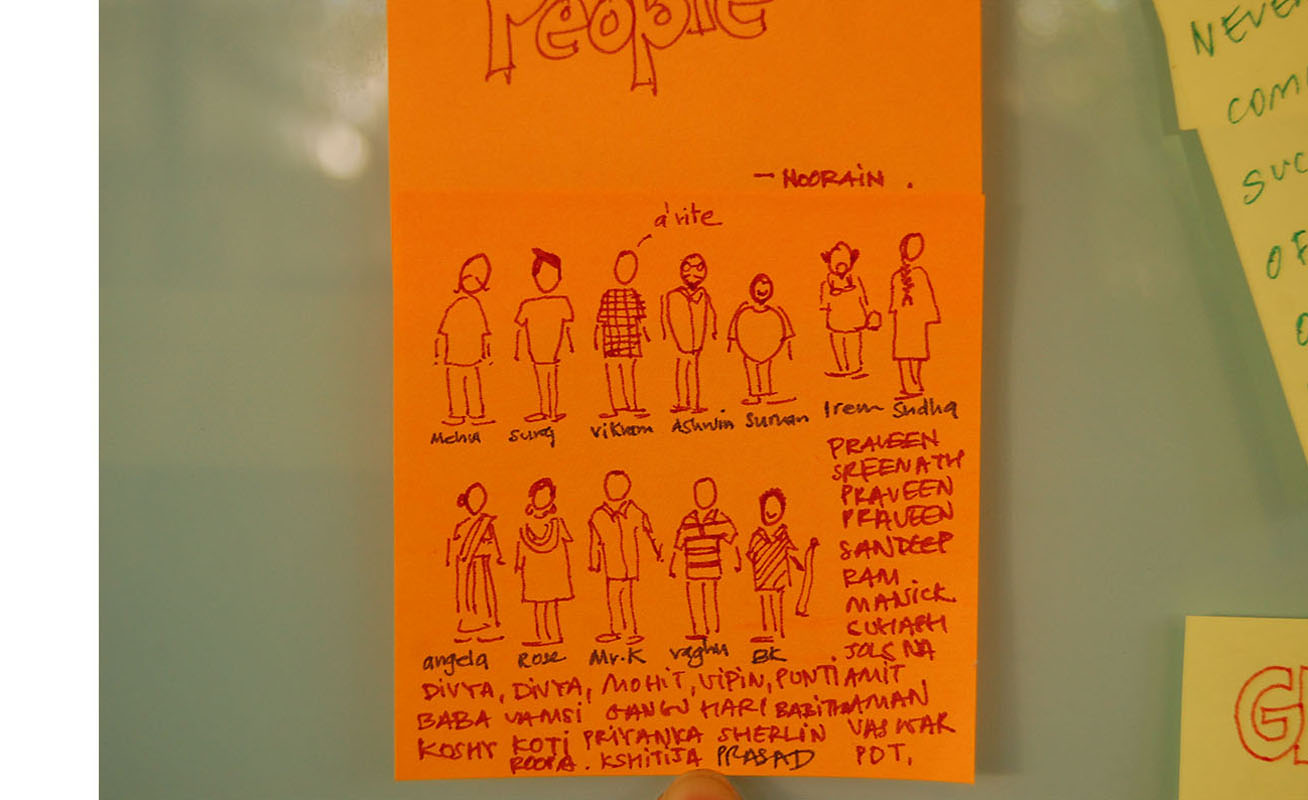 People
- NOORAIN .
a'rite
Mehra suraj vikram Ashwin Suman Irem Sudha
PRAVEEN
SREENATH
PRAVEEN
PRAVEEN
SANDEEP
RAM
MANICK
SUHASH
JOLSNA
angela Rose Mr.K raghu BK
DIVYA, DIVYA, MOHIT, VIPIN, PUNTI AMIT
BABA VAMSI GANGU HARI BABITHA AMAN
KOSHY KOTI PRIYANKA SHERLIN VASWAR
ROOPA. KSHITIJA PRASAD PDT.
NEVER
COM
SUC
OF
G